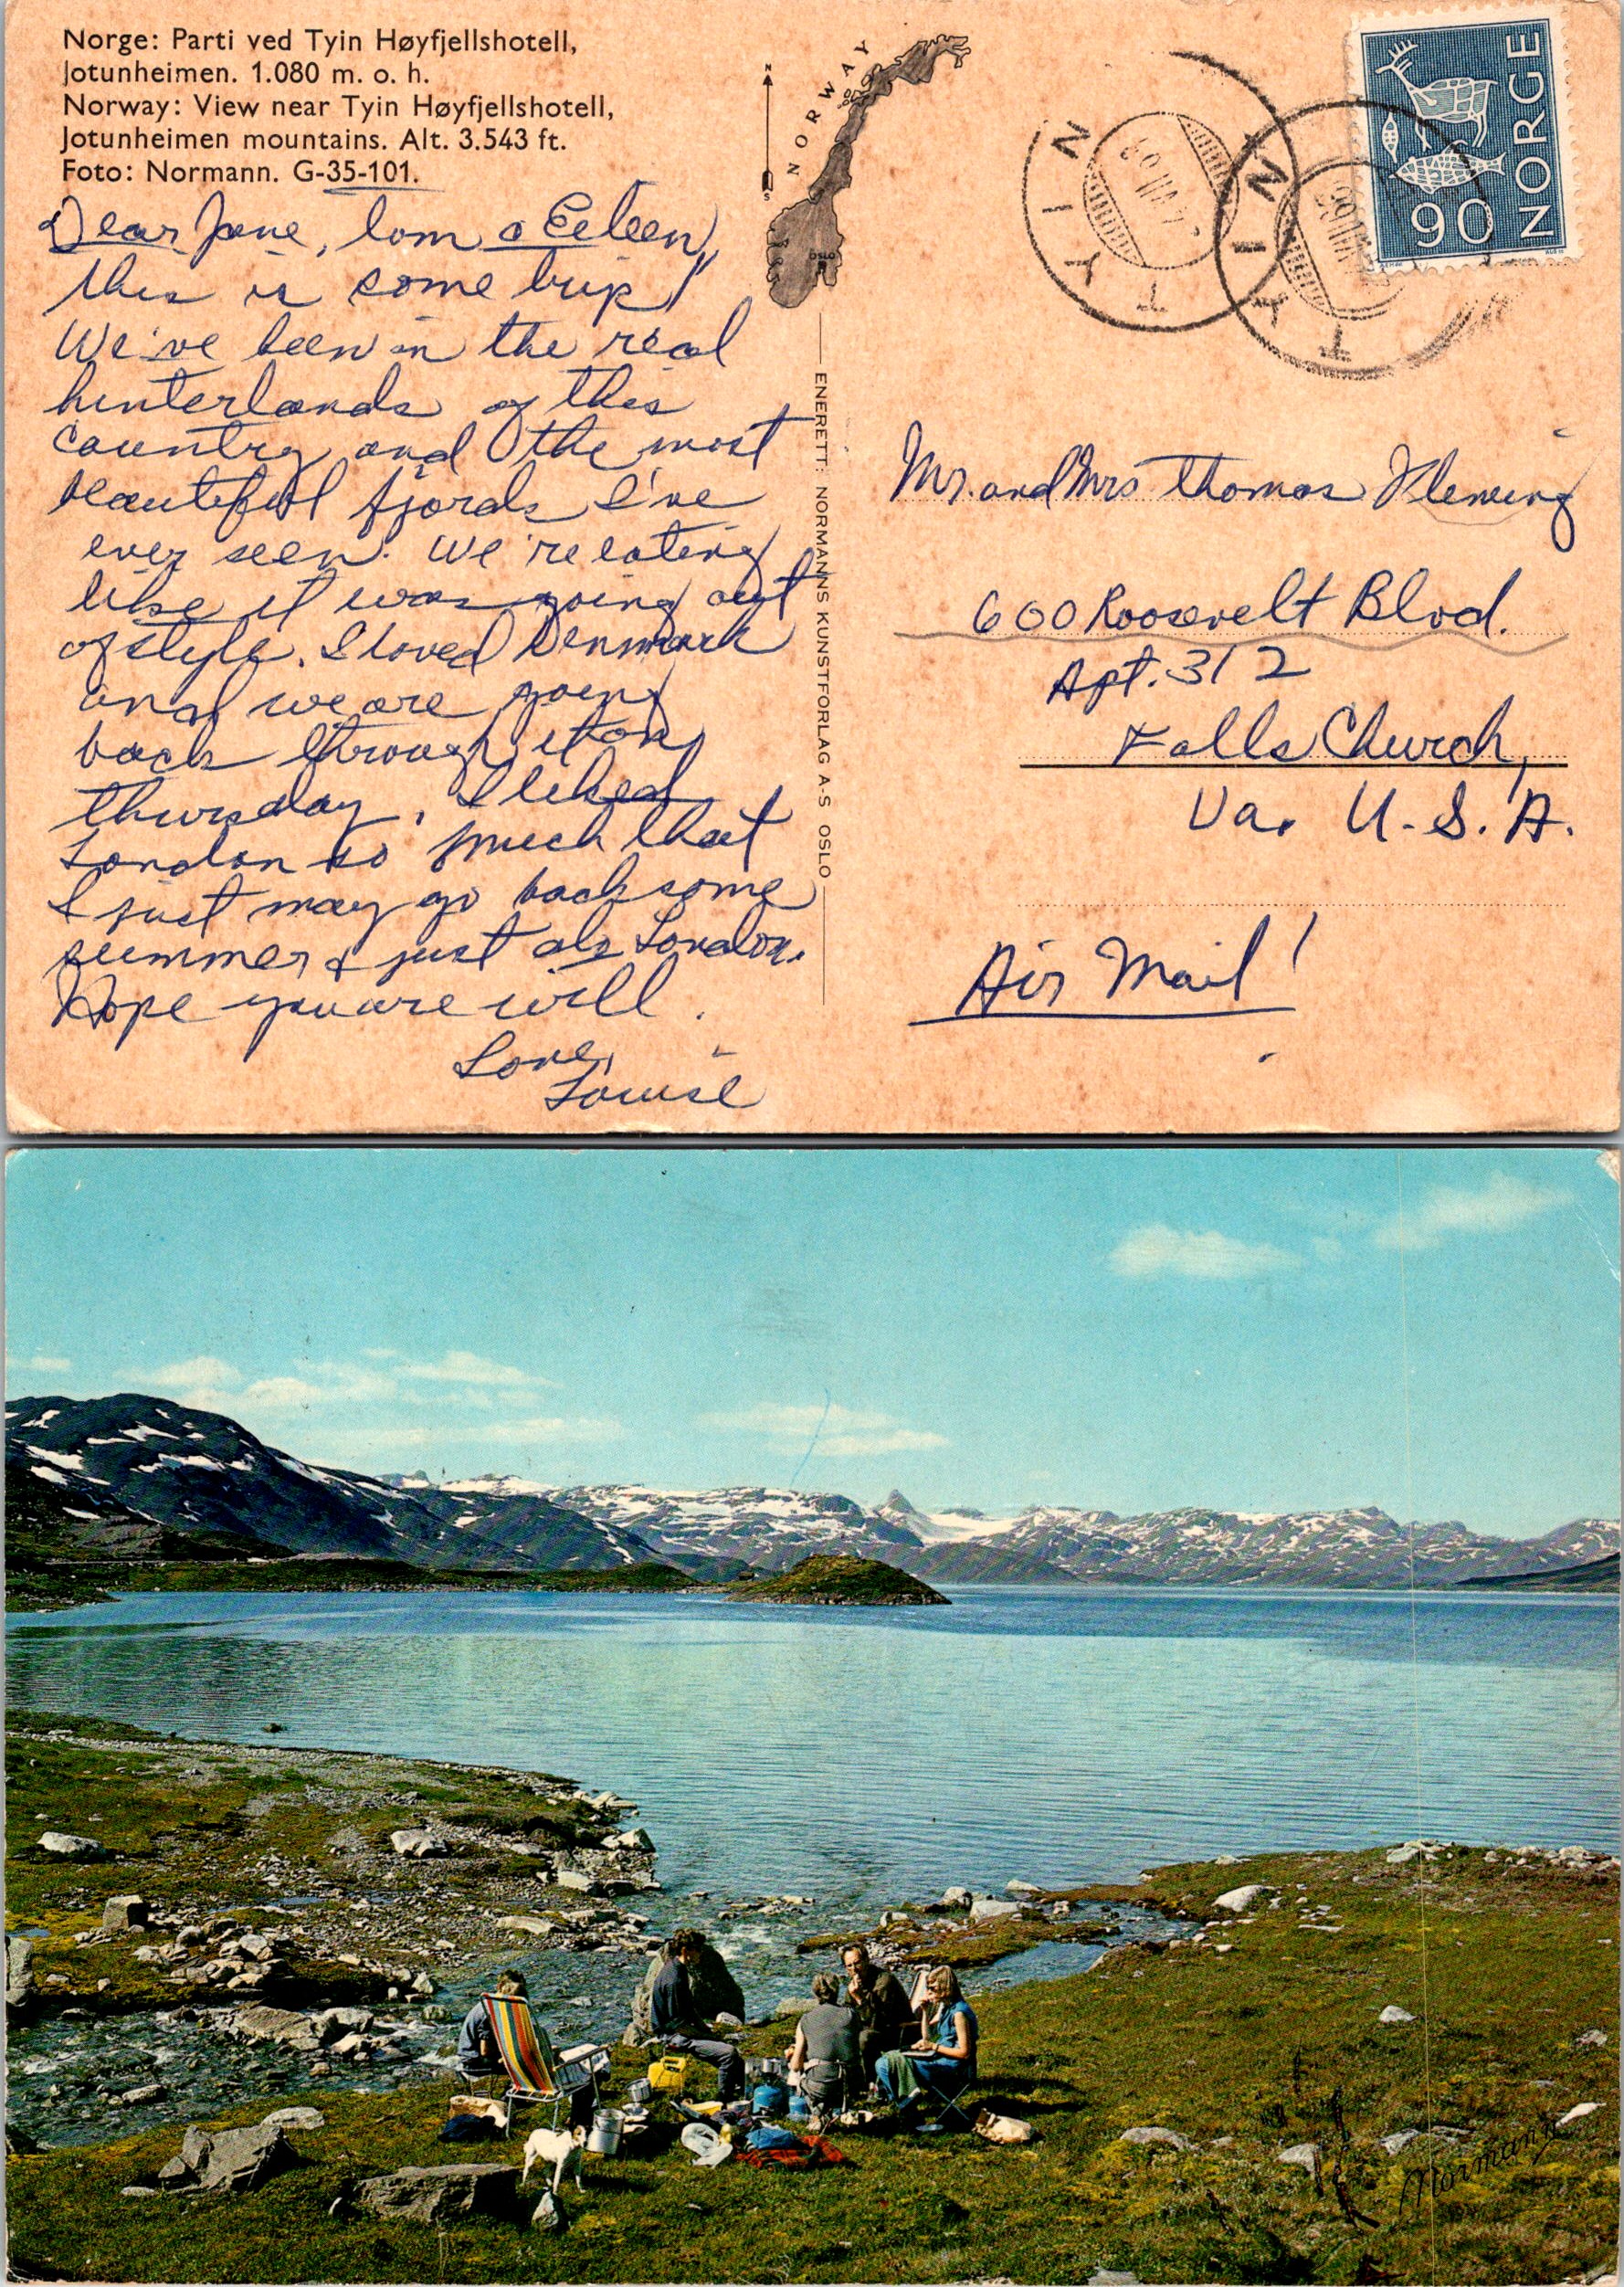 Norge: Parti ved Tyin Høyfjellshotell,
Jotunheimen. 1.080 m. o. h.
Norway: View near Tyin Høyfjellshotell,
Jotunheimen mountains. Alt. 3.543 ft.
Foto: Normann. G-35-101.
Dear Jane, Tom & Eileen,
This is some trip!
We've been in the real
hinterlands of this
country and the most
beautiful fjords I've
ever seen. We're eating
like it was going out
of style. I loved Denmark
and we are going
back through it on
Thursday. I liked
London so much that
I just may go back some
summer & just do London.
Hope you are well.
Love,
Louise
N
S
NORWAY
OSLO
ENERETT: NORMANNS KUNSTFORLAG A-S OSLO
TYIN
TYIN
NORGE
90
Mr. and Mrs Thomas Fleming
600 Roosevelt Blvd.
Apt. 312
Falls Church,
Va. U.S.A.
Air Mail!
Normann